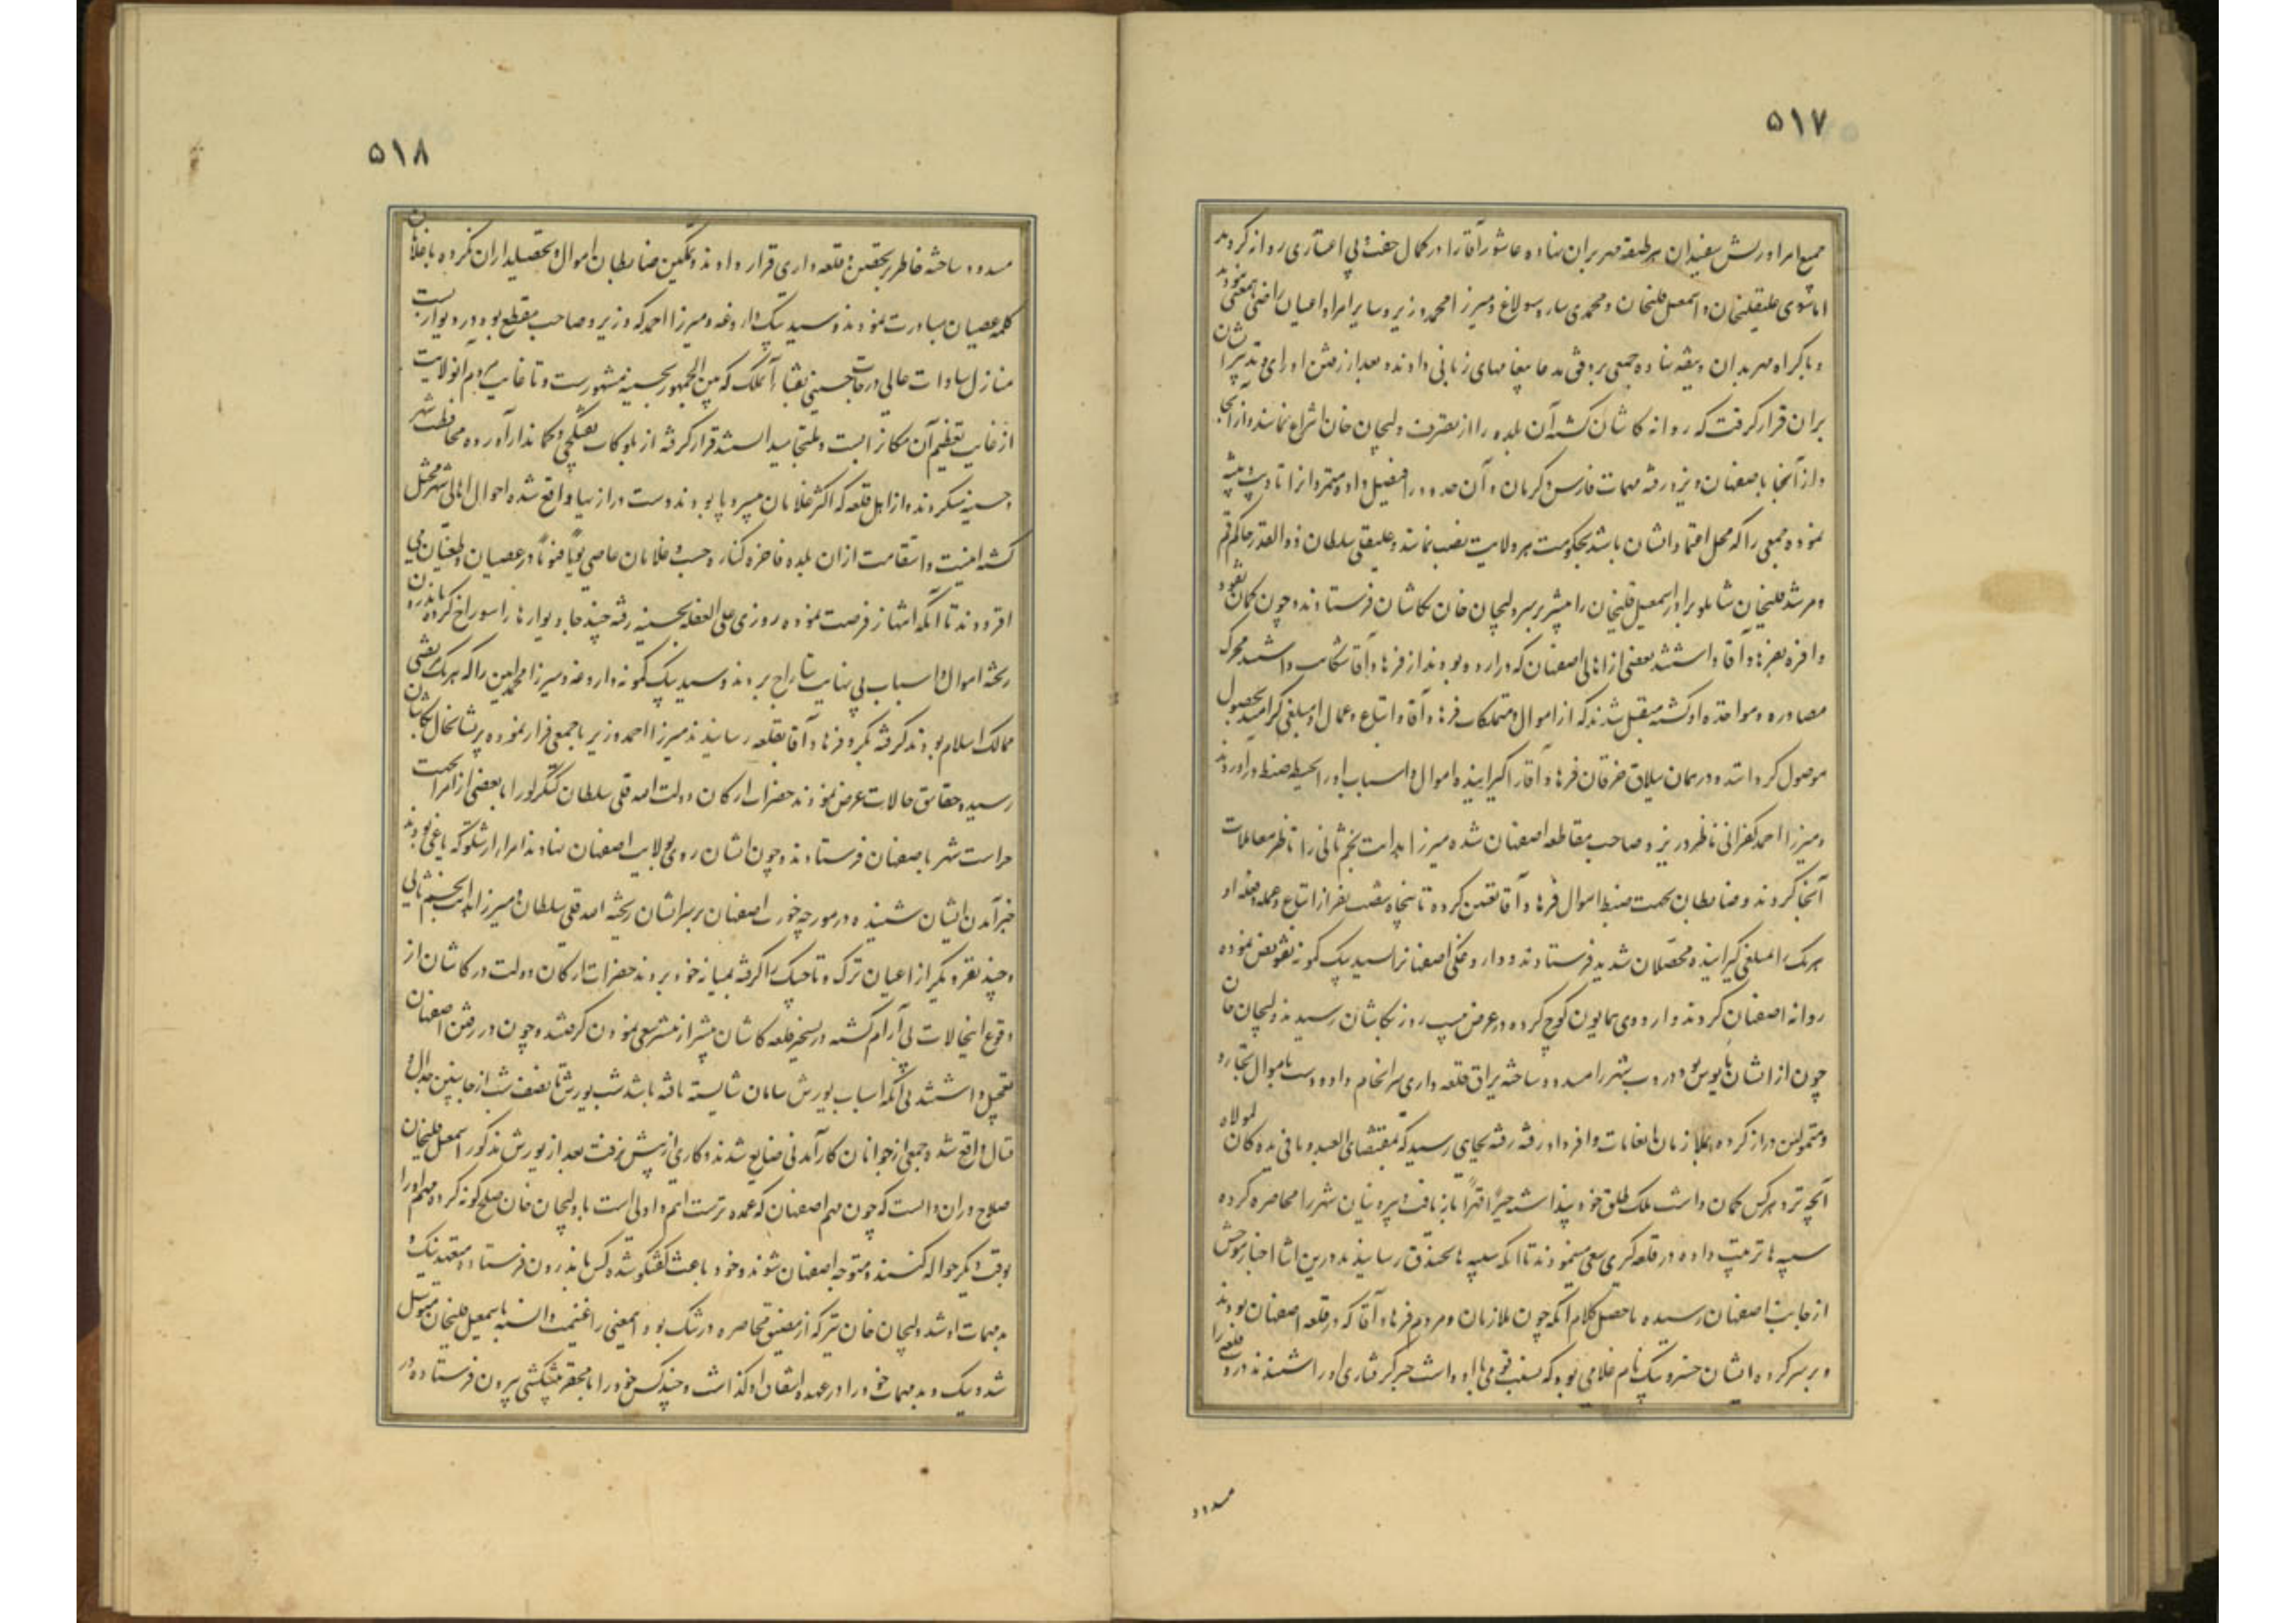 ۵۱۷
جمیع امرا و ریش سفیدان هر طبقه مهر بران نهاده عاشور آقا را در کمال خفت و بی اعتباری روانه کردند
اما سوی علیقلیخان و اسمعیل قلیخان و محمدی سارو سولاغ و میرزا محمد وزیر و سایر امرا و اعیان راضی بمعنی نبودند
و باکراه مهر بدان وثیقه نهاده جمعی بروفق مدعا پیغامهای زبانی دادند و بعد از رفتن او رای و تدبیر ایشان
بران قرار گرفت که روانه کاشان گشته آن بلده را از تصرف ولیجان خان انتزاع نمایند و از آنجا
و از آنجا باصفهان و یزد رفته مهمات فارس و کرمان و آن حدود را فیصل داده متمردانرا تادیب و تنبیه
نموده جمعی را که محل اعتماد ایشان باشد بحکومت هر ولایت نصب نمایند و علیقلی سلطان ذوالقدر حاکم قم
و مرشد قلیخان شاملو برادر اسمعیل قلیخان را پیشتر بر سر ولیجان خان بکاشان فرستادند و چون گمان نقود
وافره بفرهاد آقا داشتند بعضی از اهالی اصفهان که در اردو بودند از فرهاد آقا شکایت داشتند محرک
مصادره و مواخذه او گشته متقبل شدند که از اموال و متملکات فرهاد آقا و اتباع و عمال او مبلغی گرامند بحصول
موصول گردانند و در همان ییلاق خرقان فرهاد آقا را گیرانیده اموال و اسباب او را بحیطه ضبط درآوردند
و میرزا احمد کفرانی ناظر وزیر و صاحب مقاطعه اصفهان شده میرزا هدایت نجم ثانی را ناظر معاملات
آنجا کردند و ضابطان بجهت ضبط اموال فرهاد آقا تعیین کرده تا پنجاه شصت نفر از اتباع و عمله و فعله او
هریک را مبلغی گیرانیده محصلان شدید فرستادند و داروغگی اصفهانرا بسید بیک کمونه تفویض نموده
روانه اصفهان کردند و اردوی همایون کوچ کرده در عرض بیست روز بکاشان رسیدند ولیجان خان
چون از ایشان مایوس بود دروب شهر را مسدود ساخته یراق قلعه داری سرانجام داده و دست باموال تجار و
و متمولین دراز کرده بملازمان انعامات وافر داد رفته رفته بجایی رسید که بمقتضای العبد و ما فی یده کان لمولاه
آنچه نزد هرکس گمان داشت ملک طلق خود پنداشته جبرا قهرا بازیافت و بیرونیان شهر را محاصره کرده
سیبه ها ترتیب داده در قلعه گیری سعی مینمودند تا آنکه سیبه ها بخندق رسانیدند درین اثنا اخبار موحش
از جانب اصفهان رسیده ماحصل کلام آنکه چون ملازمان و مردم فرهاد آقا که در قلعه اصفهان بودند
و بر سر کرده ایشان خسرو بیک نام غلامی بود که نسبت قومی با او داشت خبر گرفتاری او را شنیدند در قلعه را
مسدود
۵۱۸
مسدود ساخته خاطر بتحصن و قلعه داری قرار دادند و تمکین ضابطان اموال و تحصیلداران نکرده باعلان
کلمه عصیان مبادرت نمودند و سید بیک داروغه و میرزا احمد که وزیر و صاحب مقطع بود در دیوار بست
منازل سادات عالی درجات حسینی نقباء آنملک که بین الجمهور بحسینیه مشهورست و تا غایت مردم انولایت
از غایت تعظیم آن مکانرا بست و ملتجا میدانستند قرار گرفته از بلوکات تفنگچی و کماندار آورده محافظت شهر
و حسینیه میکردند و از اهل قلعه که اکثر غلامان بی سر و پا بودند دست درازیها واقع شده احوال اهالی شهر مختل
گشته امنیت و استقامت از ان بلده فاخره کناره جست و غلامان عاصی یوما فیوما در عصیان و طغیان می
افزودند تا آنکه انتهاز فرصت نموده روزی علی الغفله بحسینیه رفته چند جا دیوارها را سوراخ کرده باندرون
ریخته اموال و اسباب بی نهایت بتاراج بردند و سید بیک کمونه داروغه و میرزا محمد امین را که هریک نقیبی
ممالک اسلام بودند گرفته بگرو فرهاد آقا بقلعه رسانیدند میرزا احمد وزیر با جمعی فرار نموده پریشانحال بکاشان
رسیده حقایق حالات عرض نمودند حضرات ارکان دولت امه قلی سلطان کنگرلو را با بعضی از امرا بجهت
حراست شهر باصفهان فرستادند و چون ایشان روی بولایت اصفهان نهادند امراء ارشلو که یاغی بودند
خبر آمدن ایشان شنیده در مورچه خورت اصفهان بر سر ایشان ریخته امه قلی سلطان و میرزا هدایت نجم ثانی
و چند نفر دیگر از اعیان ترک و تاجیک را گرفته بمیانه خود بردند حضرات ارکان دولت در کاشان از
وقوع اینحالات بی آرام گشته در تسخیر قلعه کاشان بیشتر از پیشتر سعی نمودن گرفتند و چون در رفتن اصفهان
تعجیل داشتند بی آنکه اسباب یورش سامان شایسته یافته باشد شب یورش تا نصف شب از جانبین جدال و
قتال واقع شده جمعی از جوانان کارآمدنی ضایع شدند و کاری از پیش نرفت بعد از یورش مذکور اسمعیل قلیخان
صلاح دران دانست که چون مهم اصفهان که عمده ترست اهم و اولی است با ولیجان خان صلح گونه کرده مهم او را
بوقت دیگر حواله کنند و متوجه اصفهان شوند و خود باعث گفتگو شده کس باندرون فرستاده متعهد نیک و
بد مهمات او شد ولیجان خان نیز که از مضیق محاصره در تنگ بود اینمعنی را غنیمت دانسته باسمعیل قلیخان متوسل
شد و نیک و بد مهمات خود را در عهده اشفاق او گذاشت و چند کس خود را با محقر پیشکشی بیرون فرستاده در